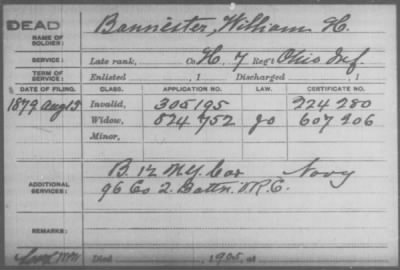 DEAD
NAME OF SOLDIER: Bannister, William H.
SERVICE: Late rank, Co. H, 7 Reg't Ohio Inf.
TERM OF SERVICE: Enlisted , 1 Discharged , 1
DATE OF FILING. CLASS. APPLICATION NO. LAW. CERTIFICATE NO.
1879 Aug 13 Invalid, 305195 224 280
Widow, 824 752 go 607 206
Minor,
ADDITIONAL SERVICES: B. 12 N.Y. Cav Navy
96 Co 2. Battn. V.R.C.
REMARKS:
Died , 1905, at